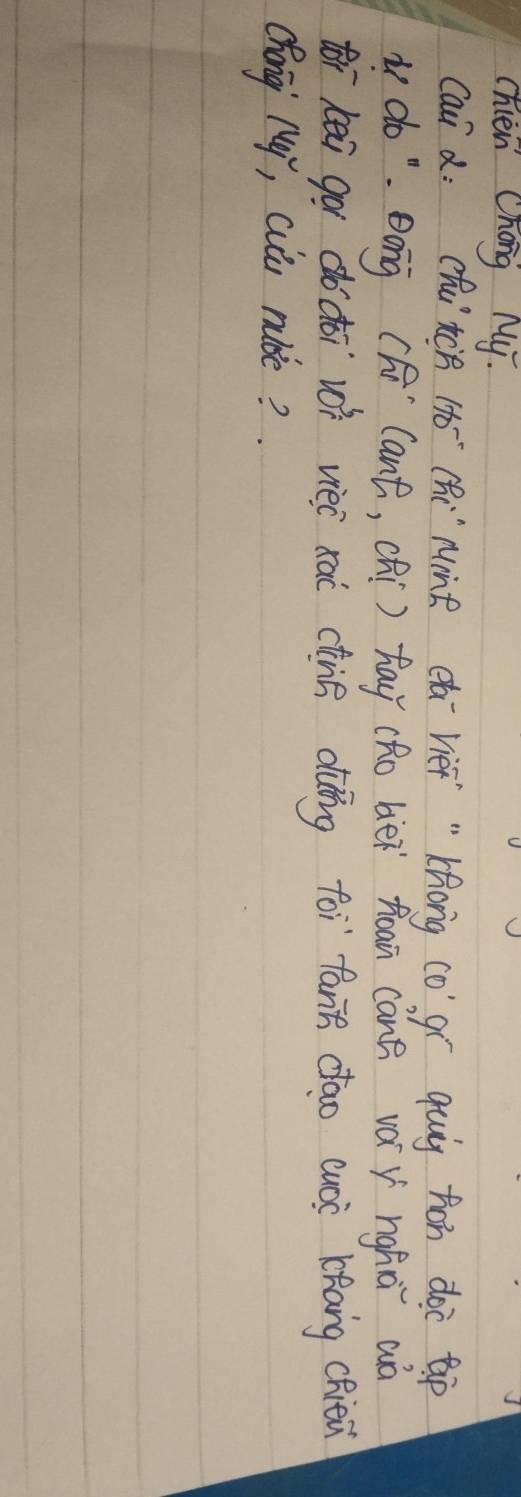 chiến chống Mỹ.
Câu 2: Chủ tịch Hồ Chí Minh đã viết "Không có gì quý hơn độc lập
tự do". Đồng chí (anh, chị) hãy cho biết hoàn cảnh và ý nghĩa của
lời kêu gọi đó đối với việc xác định đường lối lãnh đạo cuộc kháng chiến
chống Mỹ, cứu nước?.